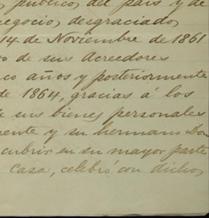 público, del país y de
negocio, desgraciado
14 de Noviembre de 1861
o de sus acreedores
co años y posteriormente
de 1864, gracias á los
sus bienes personales
mente y su hermano Don
cubrir en su mayor parte
casa, celebró con dichos